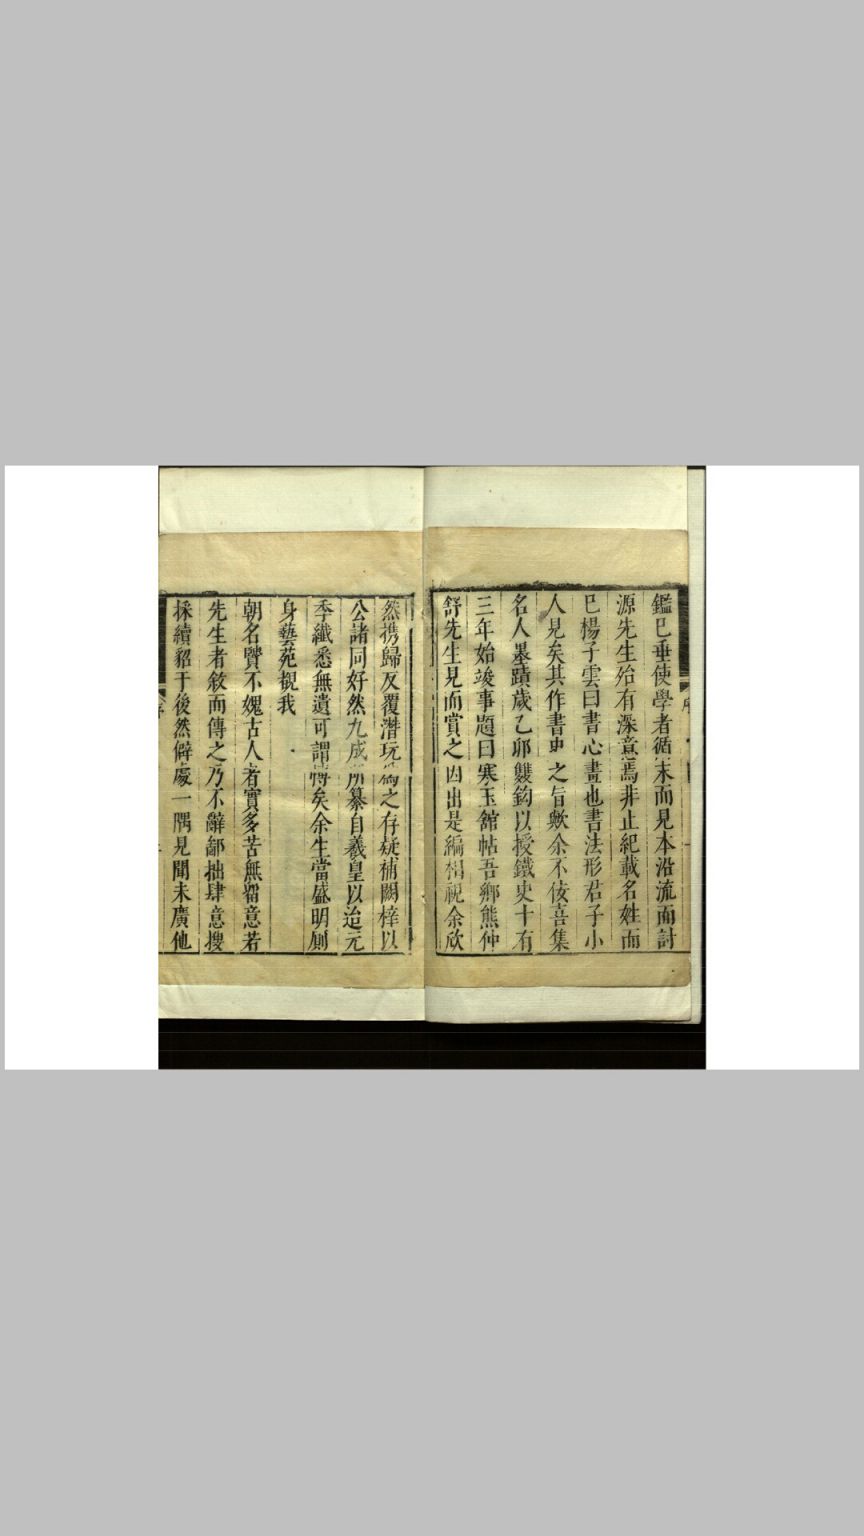 鑑已垂使學者循末而見本沿流而討
源先生殆有深意焉非止紀載名姓而
已楊子雲曰書心畫也書法形君子小
人見矣其作書史之旨歟余不佞喜集
名人墨蹟歲乙卯雙鈎以授鐵史十有
三年始竣事題曰寒玉舘帖吾鄉熊仲
舒先生見而賞之因出是編相視余欣
然携歸反覆潛玩為之存疑補闕梓以
公諸同好然九成所纂自羲皇以迨元
季纖悉無遺可謂博矣余生當盛明則
身藝苑覩我
朝名賢不媿古人者實多苦無畱意若
先生者敘而傳之乃不辭鄙拙肆意搜
採續貂于後然僻處一隅見聞未廣他
序